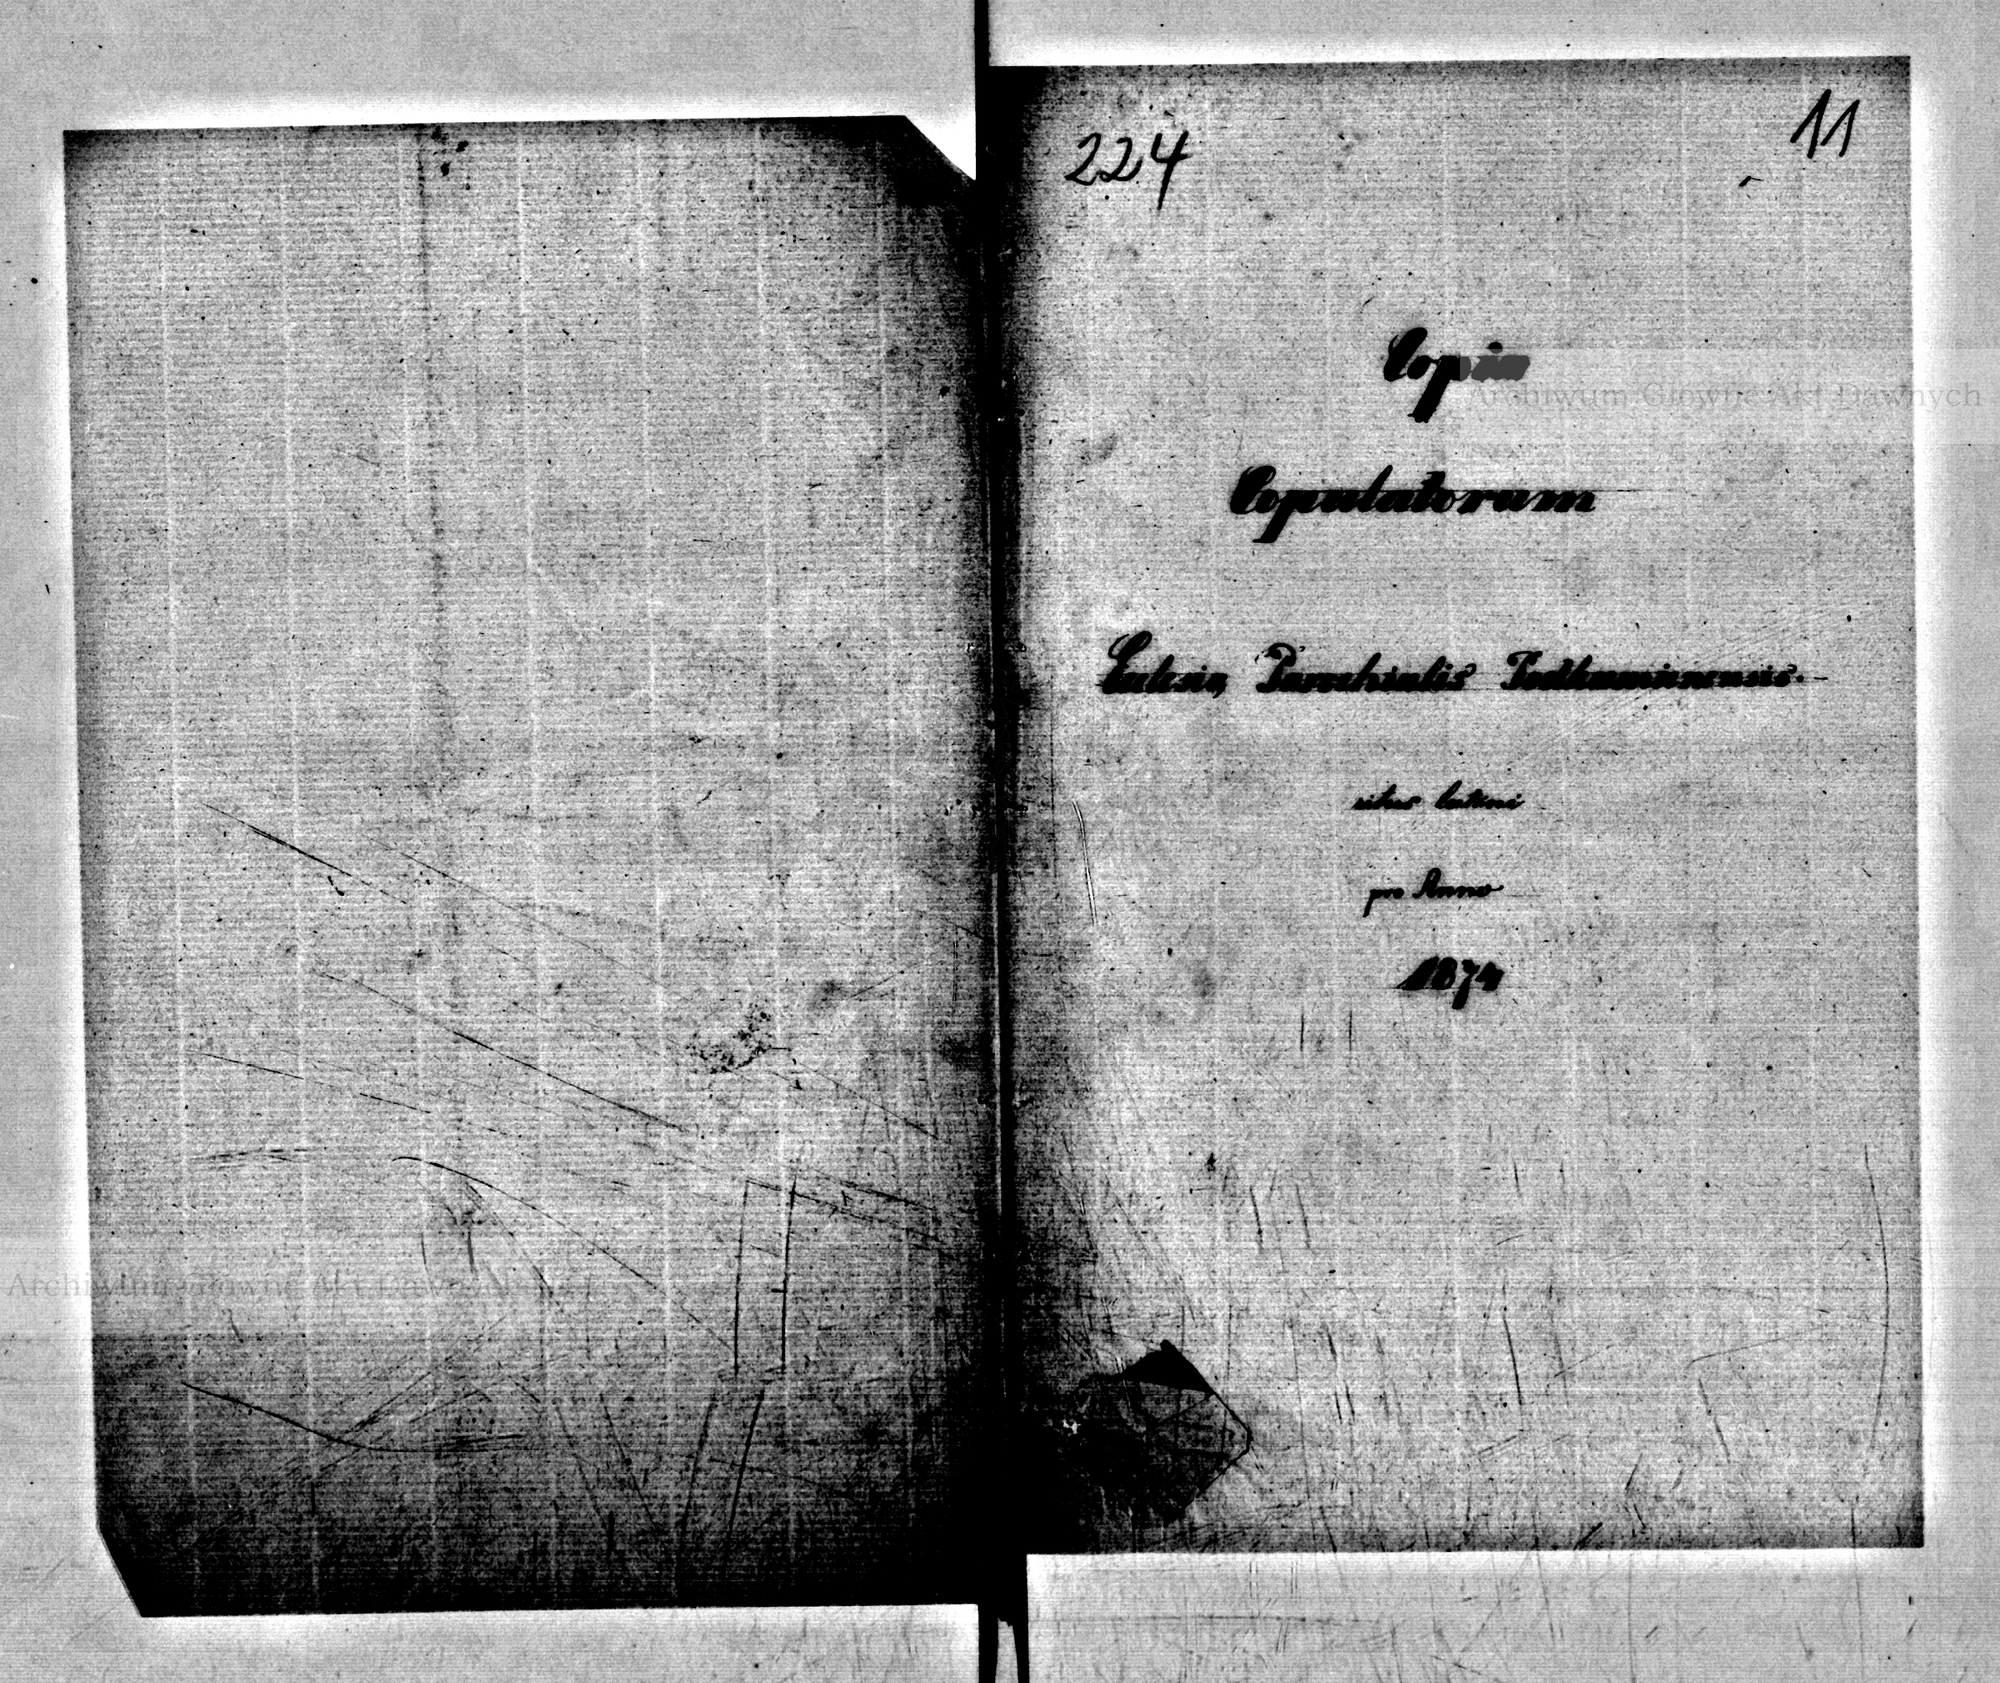 224
11
Copia
Archiwum Główne Akt Dawnych
Copulatorum
Parochialis Podkamienensis.
ritus latini
pro Anno
1874
Archiwum Główne Akt Dawnych